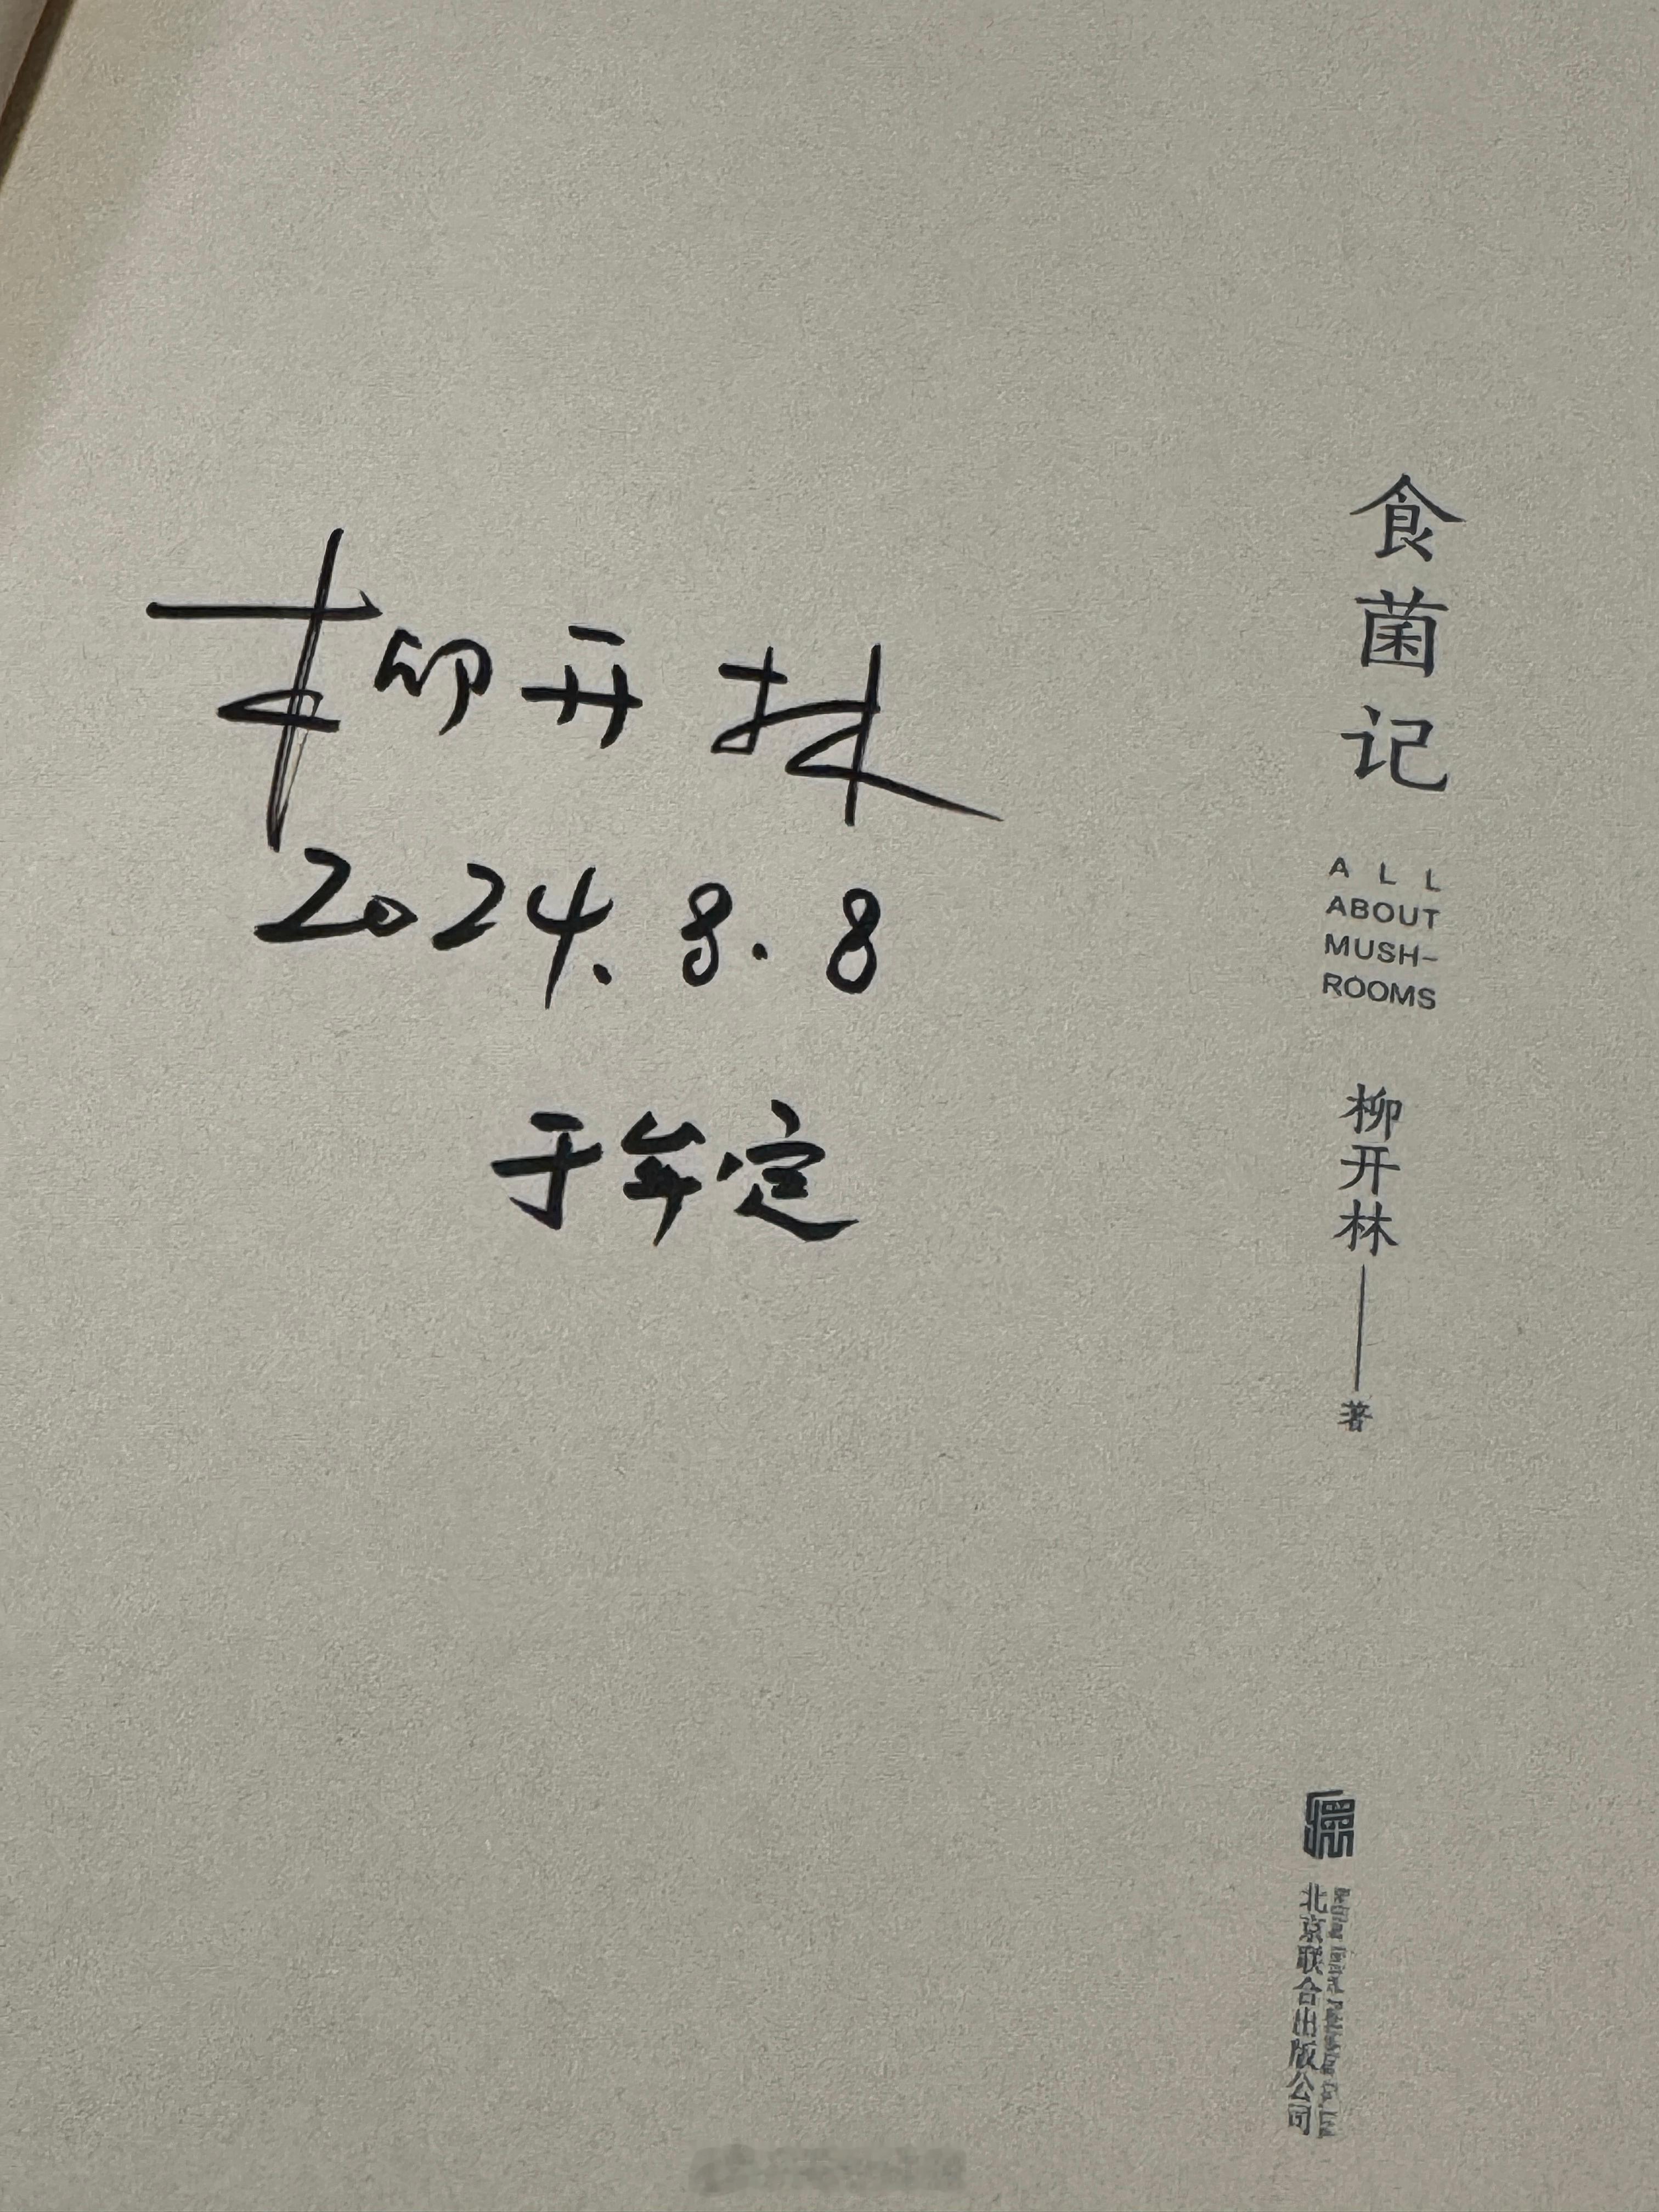 柳开林
2024.8.8
于牟定
食菌记
ALL
ABOUT
MUSH-
ROOMS
柳开林
著
北京联合出版公司